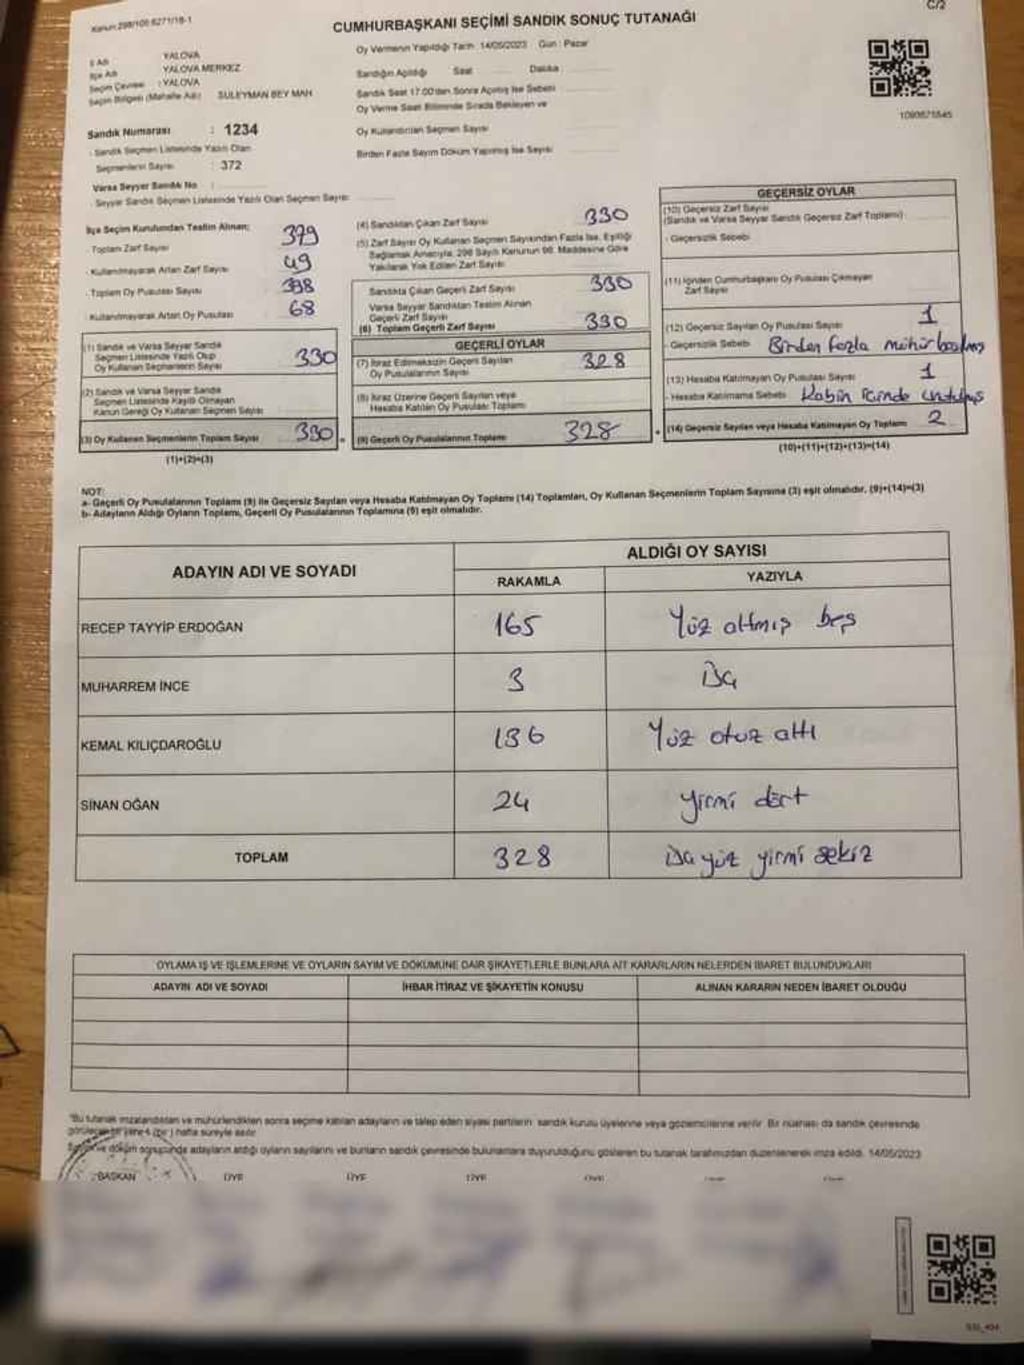 Kanun:298/106 6271/18-1
C/2
CUMHURBAŞKANI SEÇİMİ SANDIK SONUÇ TUTANAĞI
İl Adı YALOVA
İlçe Adı YALOVA MERKEZ
Seçim Çevresi : YALOVA
Seçim Bölgesi (Mahalle Adı) SULEYMAN BEY MAH
Sandık Numarası : 1234
- Sandık Seçmen Listesinde Yazılı Olan
Seçmenlerin Sayısı : 372
Varsa Seyyar Sandık No :
- Seyyar Sandık Seçmen Listesinde Yazılı Olan Seçmen Sayısı
Oy Vermenin Yapıldığı Tarih 14/05/2023 Gün : Pazar
Sandığın Açıldığı Saat Dakika
Sandık Saat 17.00'den Sonra Açılmış İse Sebebi
Oy Verme Saati Bitiminde Sırada Bekleyen ve
Oy Kullandırılan Seçmen Sayısı
Birden Fazla Sayım Döküm Yapılmış İse Sayısı
1090875545
İlçe Seçim Kurulundan Teslim Alınan;
- Toplam Zarf Sayısı 379
- Kullanılmayarak Artan Zarf Sayısı 49
- Toplam Oy Pusulası Sayısı 398
- Kullanılmayarak Artan Oy Pusulası 68
(1) Sandık ve Varsa Seyyar Sandık
Seçmen Listesinde Yazılı Olup
Oy Kullanan Seçmenlerin Sayısı 330
(2) Sandık ve Varsa Seyyar Sandık
Seçmen Listesinde Kayıtlı Olmayan
Kanun Gereği Oy Kullanan Seçmen Sayısı
(3) Oy Kullanan Seçmenlerin Toplam Sayısı 330
(1)+(2)=(3)
(4) Sandıktan Çıkan Zarf Sayısı 330
(5) Zarf Sayısı Oy Kullanan Seçmen Sayısından Fazla İse, Eşitliği
Sağlamak Amacıyla, 298 Sayılı Kanunun 98. Maddesine Göre
Yakılarak Yok Edilen Zarf Sayısı
Sandıkta Çıkan Geçerli Zarf Sayısı 330
Varsa Seyyar Sandıktan Teslim Alınan
Geçerli Zarf Sayısı
(6) Toplam Geçerli Zarf Sayısı 330
GEÇERLİ OYLAR
(7) İtiraz Edilmeksizin Geçerli Sayılan
Oy Pusulalarının Sayısı 328
(8) İtiraz Üzerine Geçerli Sayılan veya
Hesaba Katılan Oy Pusulası Toplamı
(9) Geçerli Oy Pusulalarının Toplamı 328
GEÇERSİZ OYLAR
(10) Geçersiz Zarf Sayısı
(Sandık ve Varsa Seyyar Sandık Geçersiz Zarf Toplamı)
- Geçersizlik Sebebi
(11) İçinden Cumhurbaşkanı Oy Pusulası Çıkmayan
Zarf Sayısı
(12) Geçersiz Sayılan Oy Pusulası Sayısı 1
- Geçersizlik Sebebi Birden fazla mühür basılmış
(13) Hesaba Katılmayan Oy Pusulası Sayısı 1
- Hesaba Katılmama Sebebi Kabin içinde unutulmuş
(14) Geçersiz Sayılan veya Hesaba Katılmayan Oy Toplamı 2
(10)+(11)+(12)+(13)=(14)
NOT:
a- Geçerli Oy Pusulalarının Toplamı (9) ile Geçersiz Sayılan veya Hesaba Katılmayan Oy Toplamı (14) Toplamları, Oy Kullanan Seçmenlerin Toplam Sayısına (3) eşit olmalıdır. (9)+(14)=(3)
b- Adayların Aldığı Oyların Toplamı, Geçerli Oy Pusulalarının Toplamına (9) eşit olmalıdır.
ADAYIN ADI VE SOYADI
ALDIĞI OY SAYISI
RAKAMLA YAZIYLA
RECEP TAYYİP ERDOĞAN 165 Yüz altmış beş
MUHARREM İNCE 3 üç
KEMAL KILIÇDAROĞLU 136 Yüz otuz altı
SİNAN OĞAN 24 yirmi dört
TOPLAM 328 üçyüz yirmi sekiz
OYLAMA İŞ VE İŞLEMLERİNE VE OYLARIN SAYIM VE DÖKÜMÜNE DAİR ŞİKAYETLERLE BUNLARA AİT KARARLARIN NELERDEN İBARET BULUNDUKLARI
ADAYIN ADI VE SOYADI İHBAR İTİRAZ VE ŞİKAYETİN KONUSU ALINAN KARARIN NEDEN İBARET OLDUĞU
*Bu tutanak imzalandıktan ve mühürlendikten sonra seçime katılan adayların ve talep eden siyasi partilerin sandık kurulu üyelerine veya gözlemcilerine verilir. Bir nüshası da sandık çevresinde
görülecek bir yere 1 (bir) hafta süreyle asılır
Sayım ve döküm sonucunda adayların aldığı oyların sayılarını ve bunların sandık çevresinde bulunanlara duyurulduğunu gösteren bu tutanak tarafımızdan düzenlenerek imza edildi. 14/05/2023
BAŞKAN ÜYE ÜYE ÜYE ÜYE